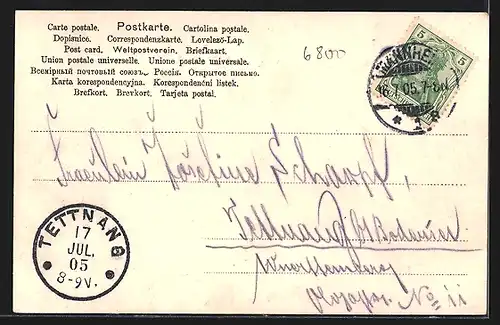 Carte postale. Postkarte. Cartolina postale.
Dopisnice. Correspondenzkarte. Levelező-Lap.
Post card. Weltpostverein. Briefkaart.
Union postale universelle. Unione postale universale.
Всемірный почтовый союзъ. Россія. Открытое письмо.
Karta korespondencyjna. Korespondenční lístek.
Brefkort. Brevkort. Tarjeta postal.
6800
5 5
MANNHEIM
16.7.05.7-8N
* 1 *
Fräulein Josefine Scharpf,
Tettnang b/Bodensee
Württemberg
No 11
TETTNANG
17
JUL.
05
8-9V.